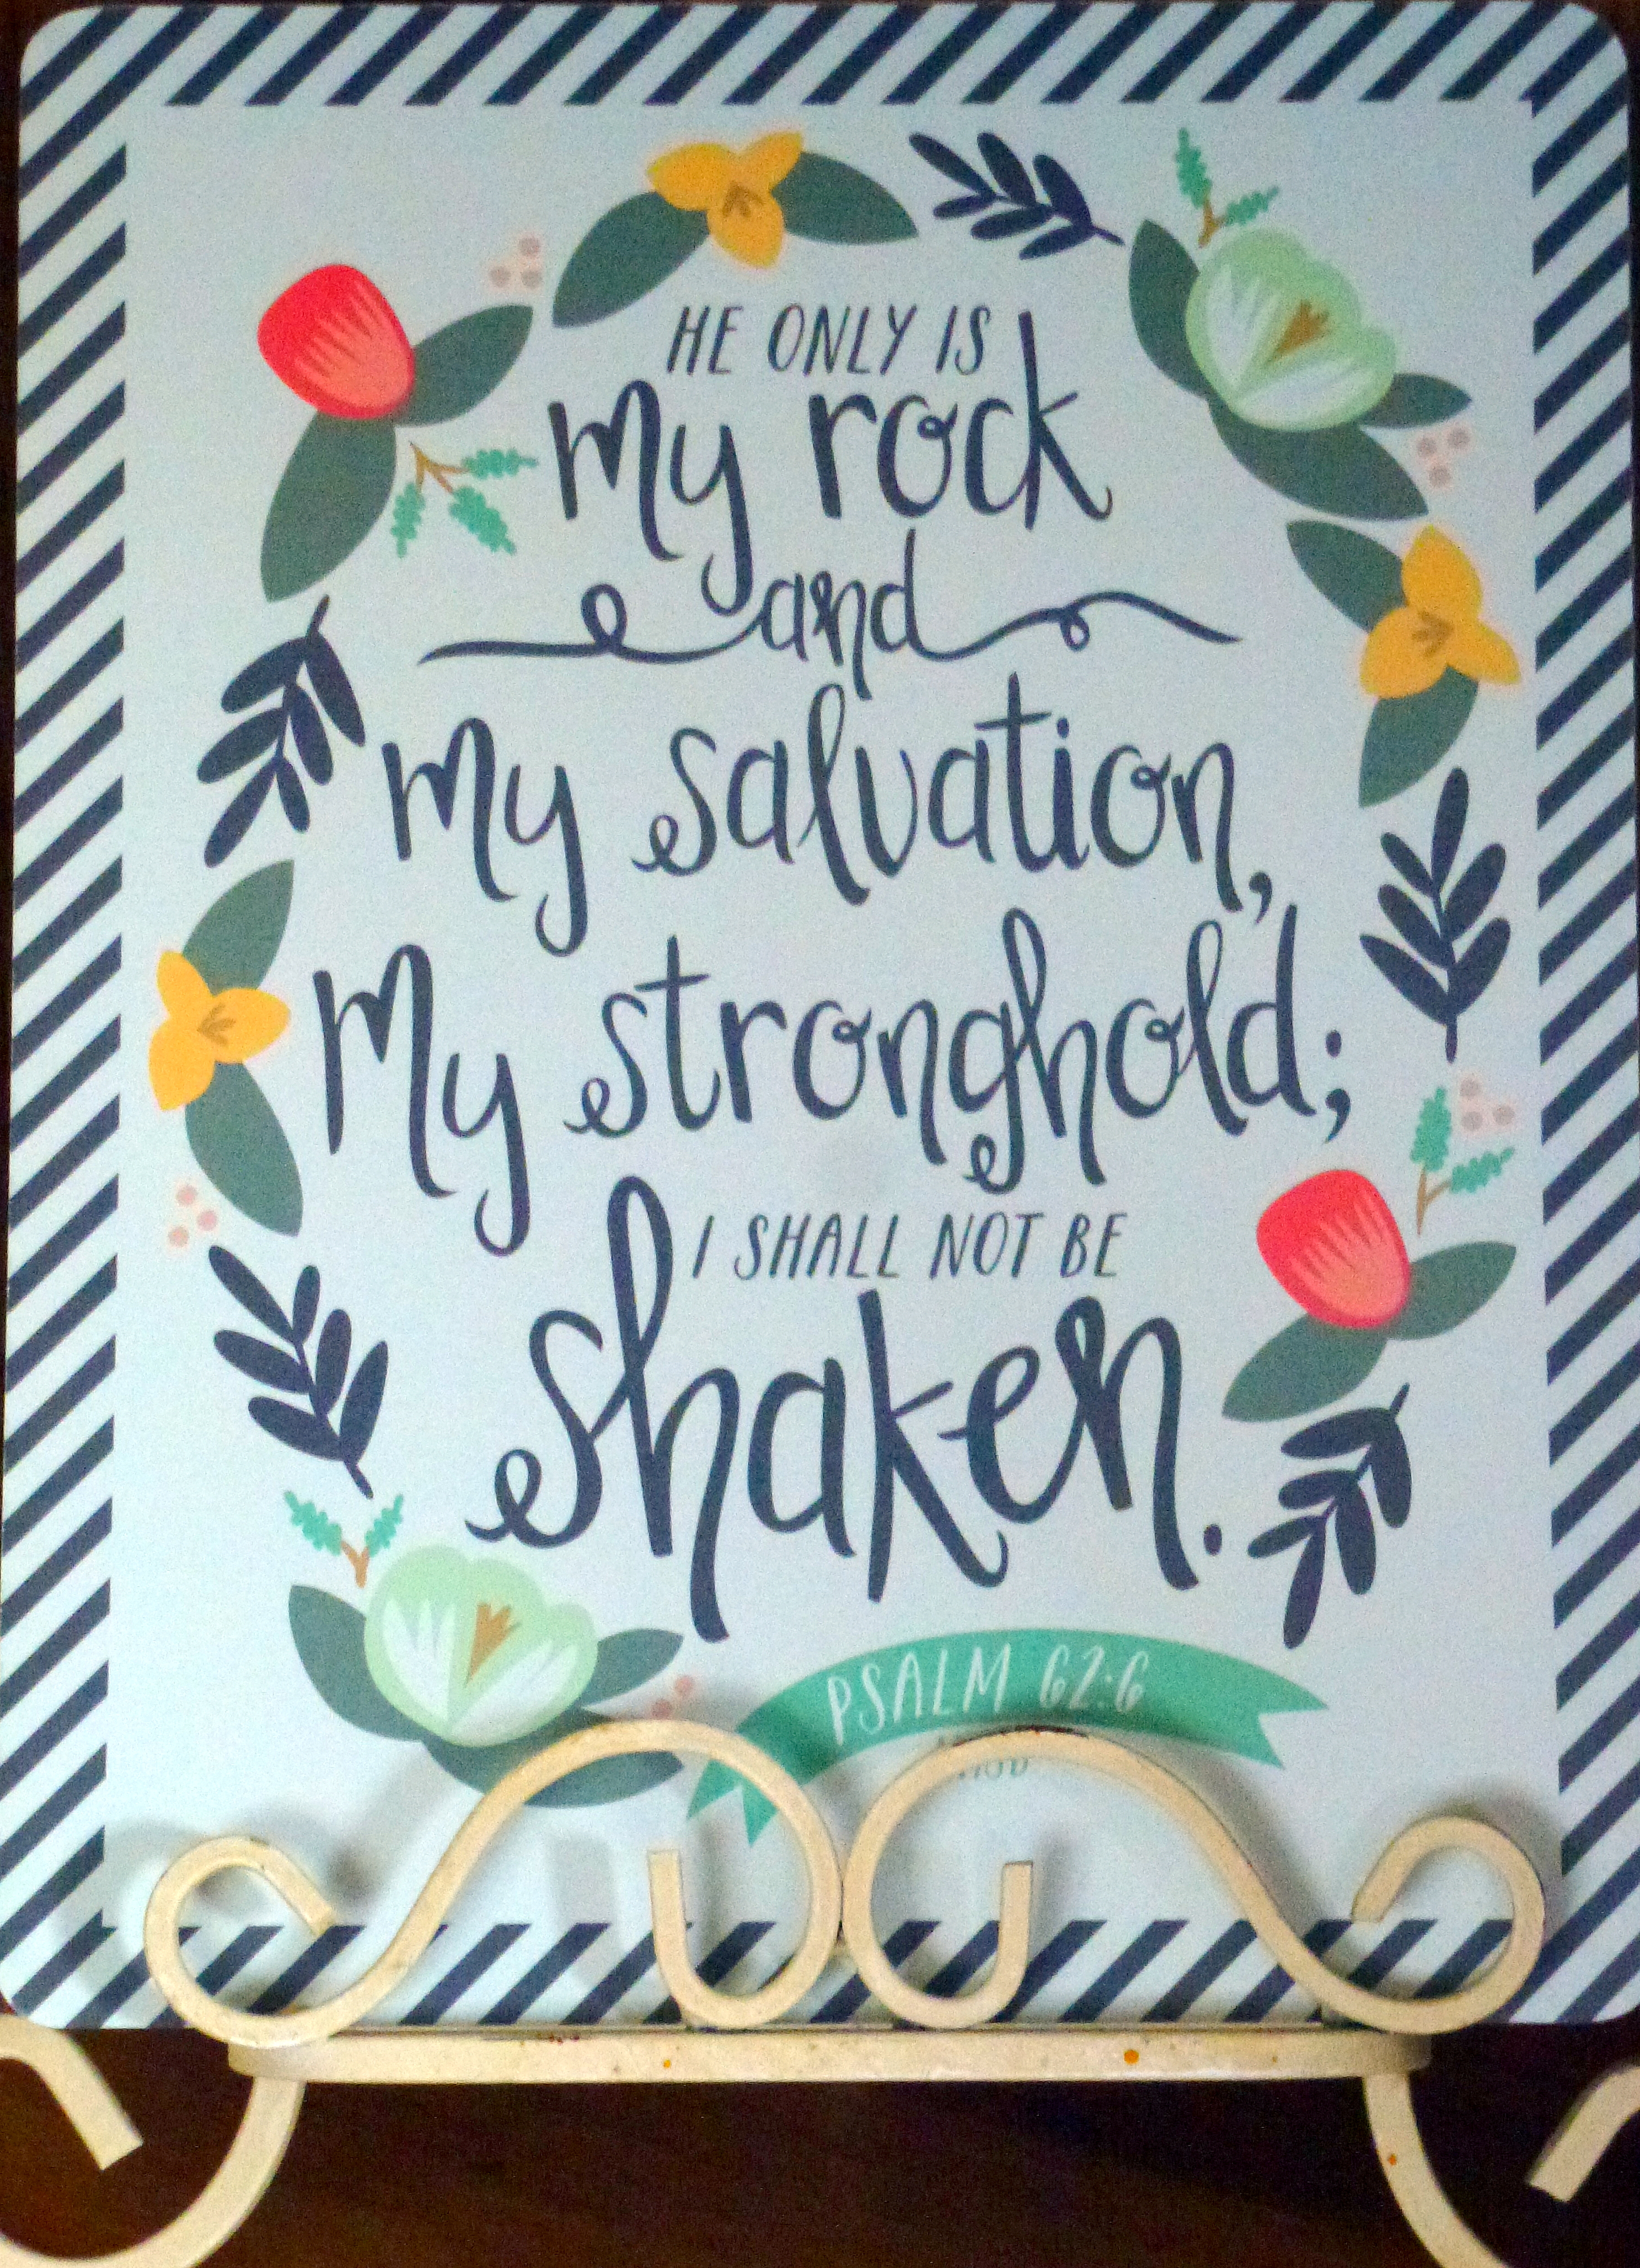 HE ONLY IS
my rock
and
my salvation,
My stronghold;
I SHALL NOT BE
shaken.
PSALM 62:6